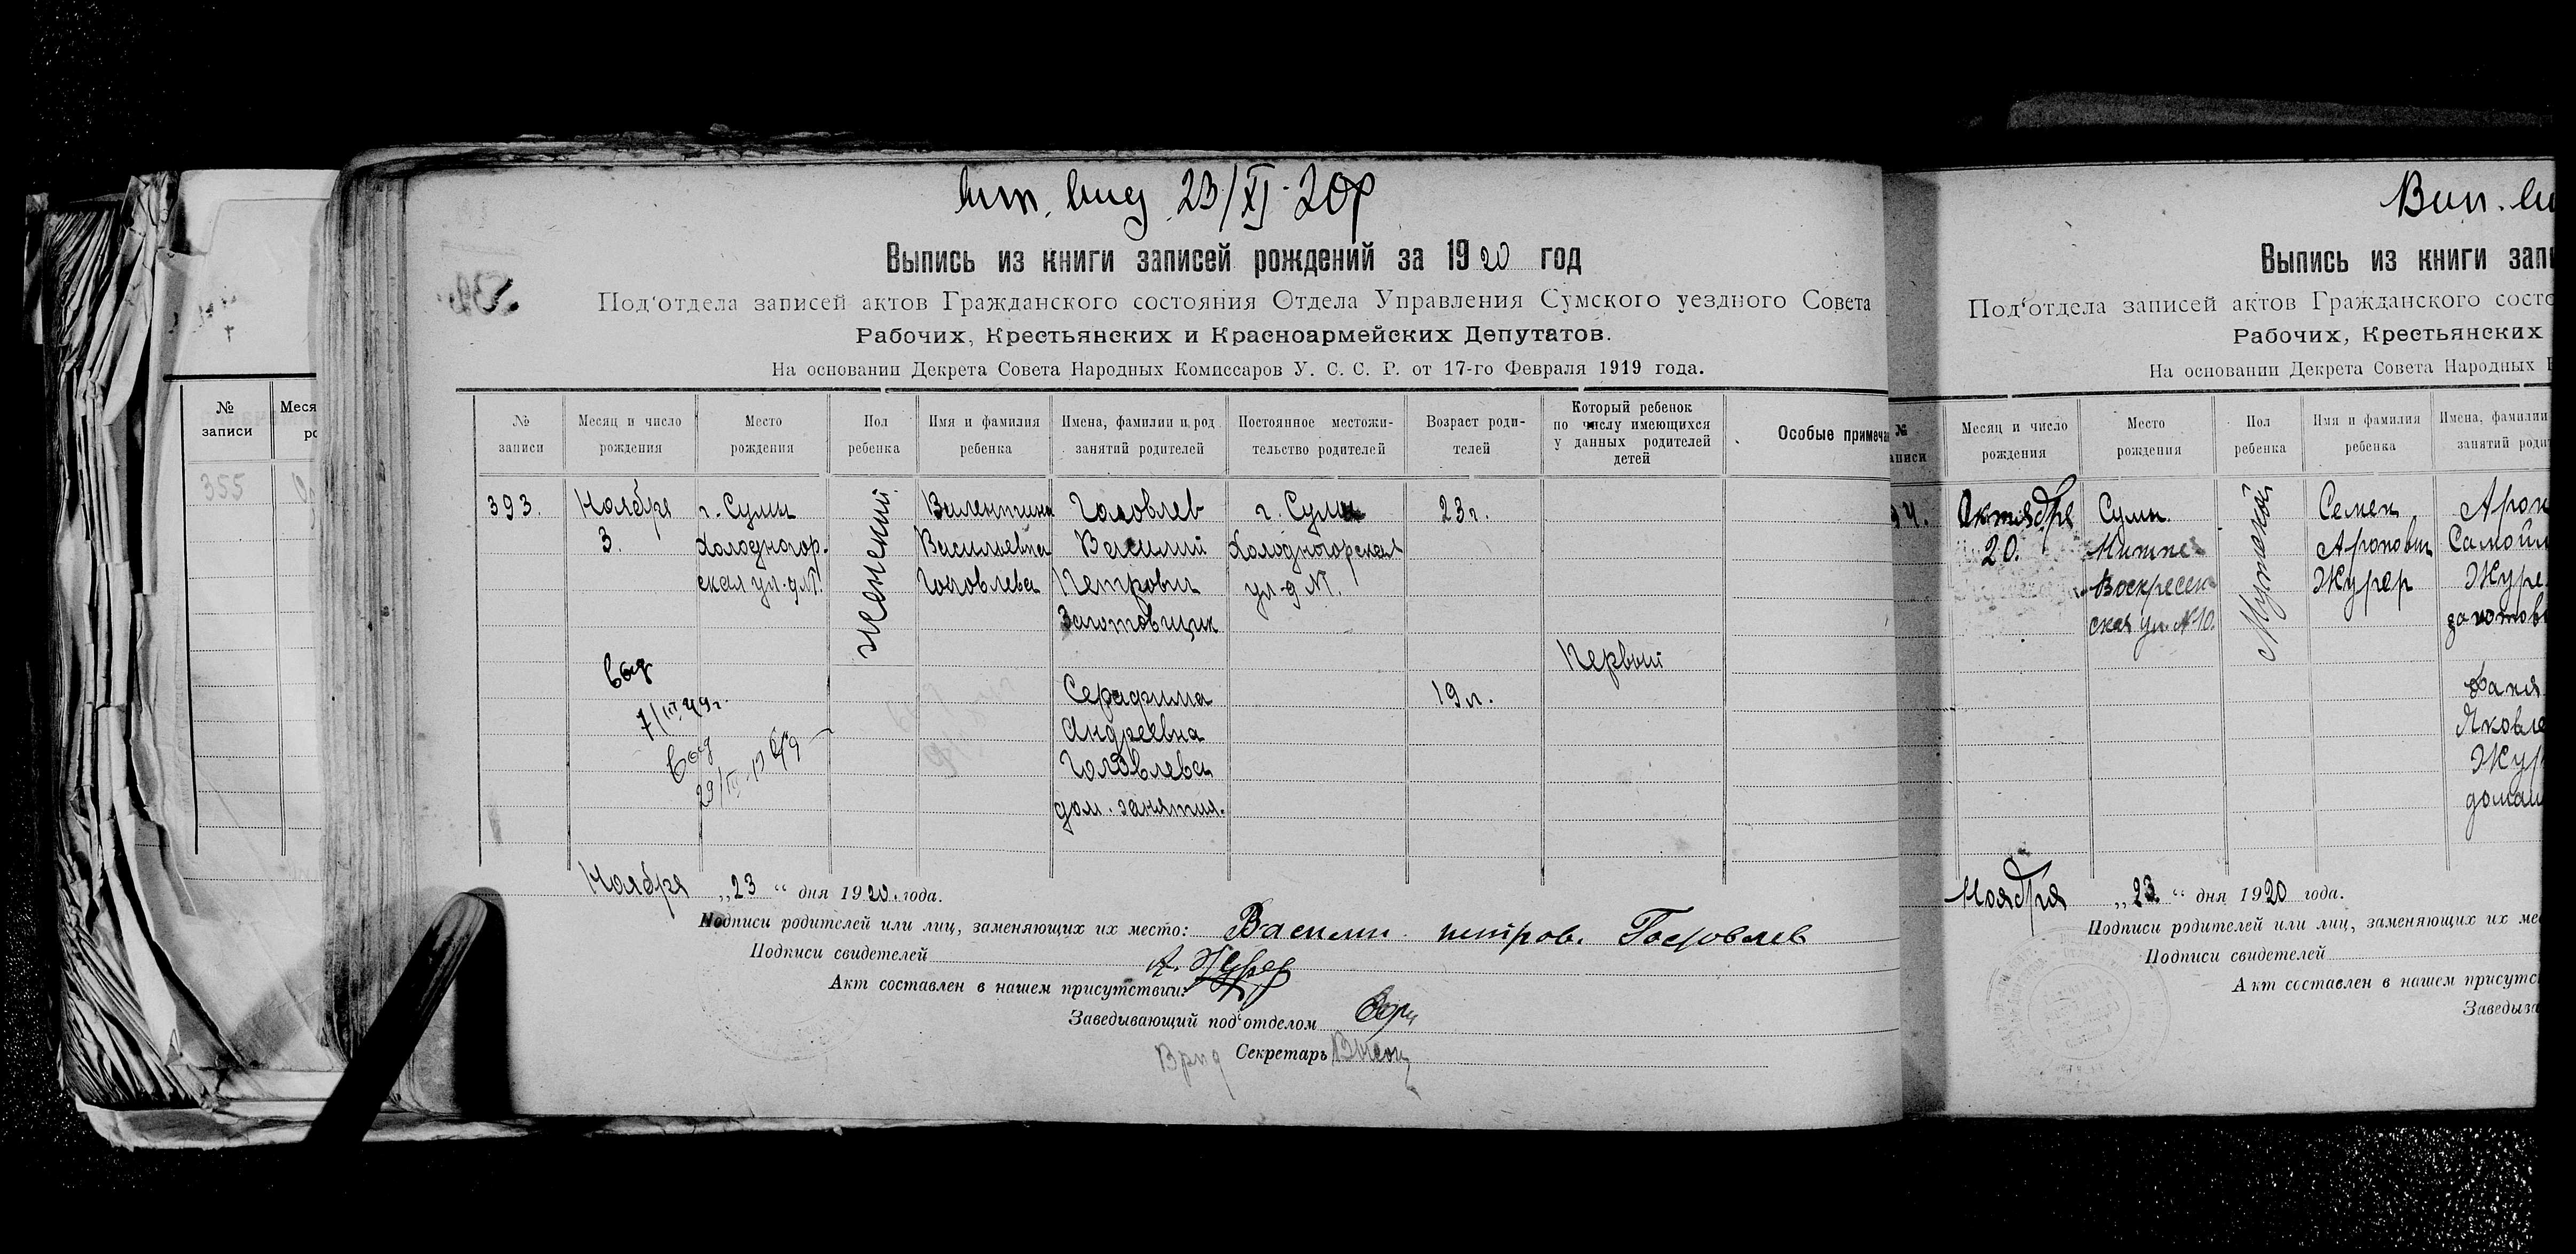 № записи
Меся
355
23/XI-20р
Выпись из книги записей рождений за 1920 год
Под‘отдела записей актов Гражданского состояния Отдела Управления Сумского уездного Совета
Рабочих, Крестьянских и Красноармейских Депутатов.
На основании Декрета Совета Народных Комиссаров У. С. С. Р. от 17-го Февраля 1919 года.
№ записи
Месяц и число рождения
Место рождения
Пол ребенка
Имя и фамилия ребенка
Имена, фамилии и род занятий родителей
Постоянное местожи-
тельство родителей
Возраст роди-
телей
Который ребенок
по числу имеющихся
у данных родителей
детей
Особые примеча
393.
Ноября
3.
г. Сумы
Холодногор.
ская ул. д №.
женский
Валентина
Васильевна
Головлева
Головлев
Василий
Петрович
Заготовщик
г. Сумы
Холодногорская
ул. д №.
23 г.
Первый
Серафима
Андреевна
Головлева
дом. занятия.
19 л.
Ноября „23“ дня 1920 года.
Подписи родителей или лиц, заменяющих их место: Василий петров.
Подписи свидетелей А. Журер
Акт составлен в нашем присутствии:
Заведывающий под‘отделом
Врид Секретарь
Вып.
Выпись из книги зап
Под‘отдела записей актов Гражданского состо
Рабочих, Крестьянских
На основании Декрета Совета Народных
№
аписи
Месяц и число рождения
Место рождения
Пол ребенка
Имя и фамилия ребенка
Имена, фамилии
занятий роди
94.
Октября
20.
Сумы.
Воскресен
ская ул. №10.
Мужской
Семен
Аронович
Журер
Арон
Самой
Журе
заготов
Фаня
Яковле
Жур
домаш
Ноября „23“ дня 1920 года.
Подписи родителей или лиц, заменяющих их ме
Подписи свидетелей
Акт составлен в нашем присутс
Заведыва